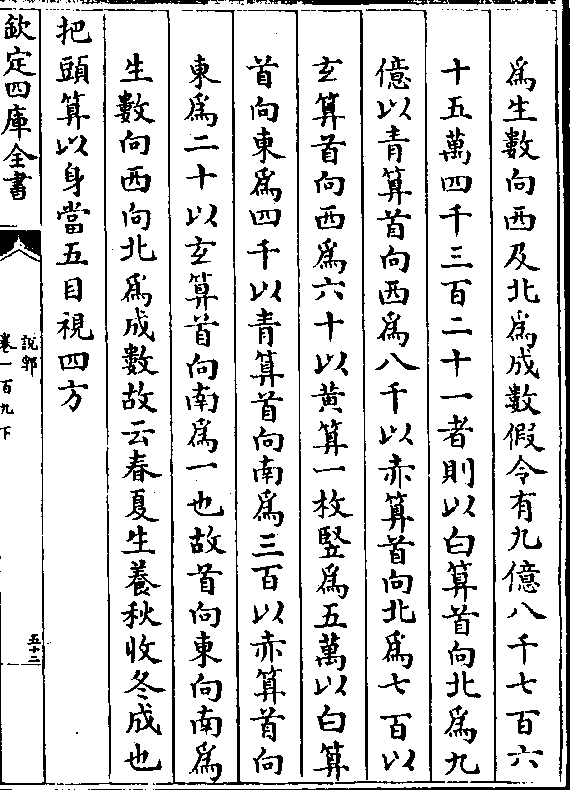 爲生數向西及北爲成數假令有九億八千七百六
十五萬四千三百二十一者則以白算首向北爲九
億以青算首向西爲八千以赤算首向北爲七百以
玄算首向西爲六十以黄算一枚竪爲五萬以白算
首向東爲四千以青算首向南爲三百以赤算首向
東爲二十以玄算首向南爲一也故首向東向南爲
生數向西向北爲成數故云春夏生養秋收冬成也
把頭算以身當五目視四方
欽定四庫全書
說郛
卷一百九下
五十二